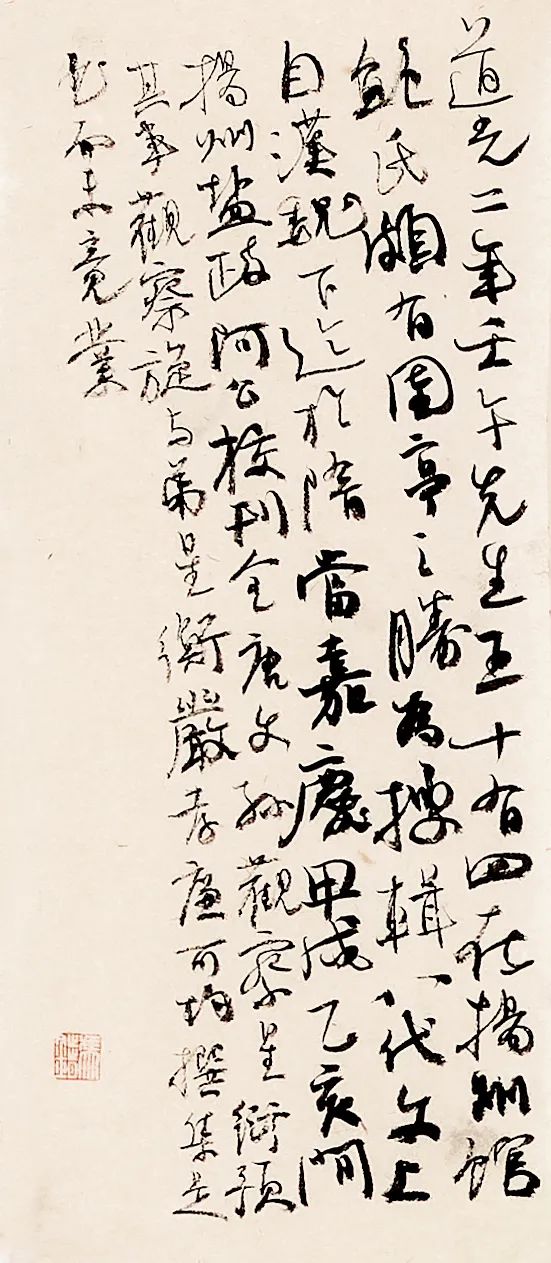 道光二年壬午先生五十有四在揚州館
鮑氏頗有園亭之勝為搜輯八代文上
自漢魏下迄於隋當嘉慶甲戌乙亥間
揚州鹽政阿公校刊全唐文孫觀察星衍預
其事觀察旋与弟星衡嚴孝廉可均撰集是
書而未竟業